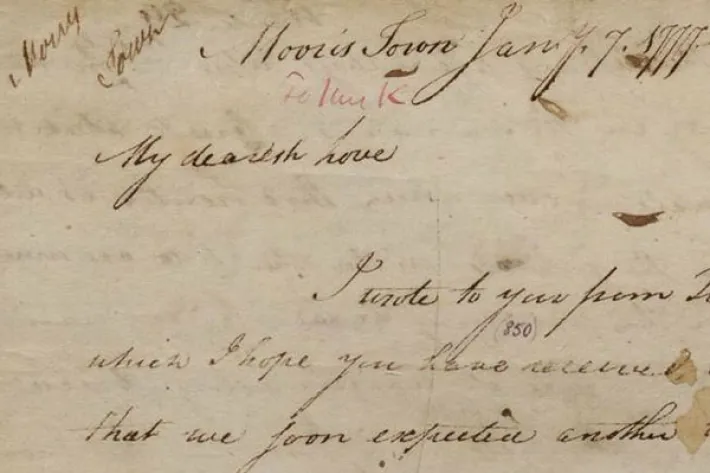 Town
Morris Town Jany. 7. 1777
To Lucy K
My dearest Love
I wrote to you from
(850)
which I hope you have receiv'd
that we soon expected another